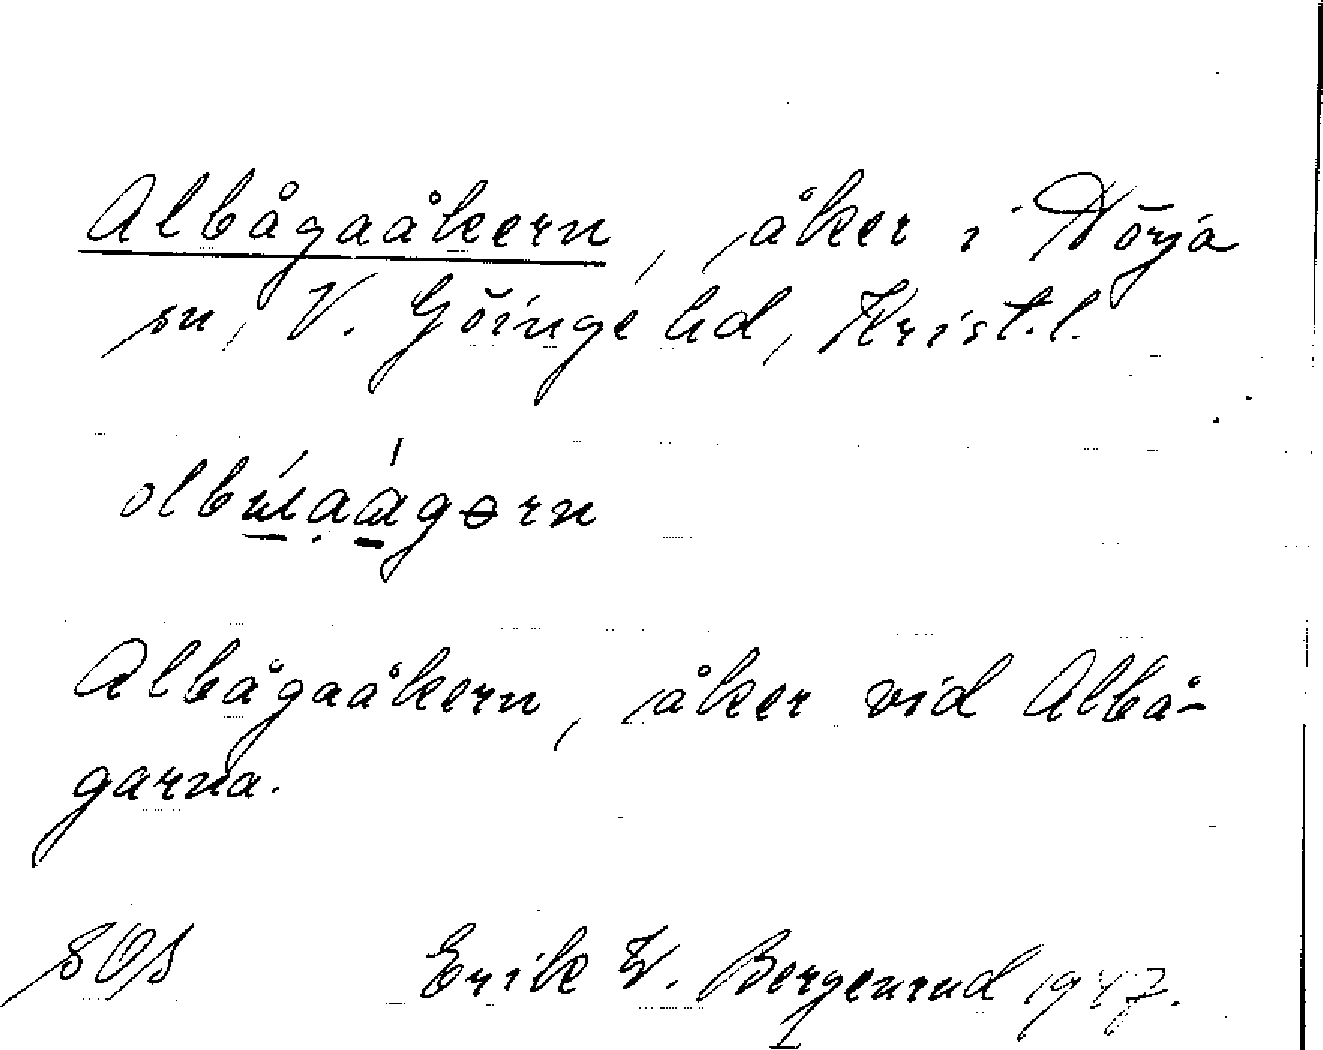 Albågaåkern, åker i Nörja
sn, V. Göinge hd, Krist.l.
Albågaåkern, åker vid Albå-
garna.
SOS Erik W. Bergenrud 1947.